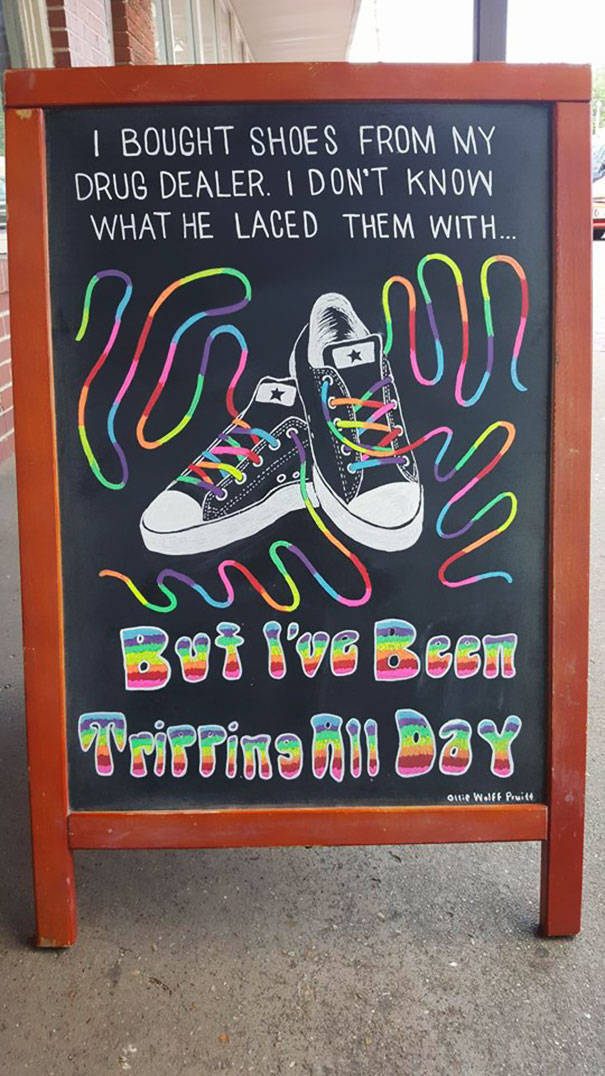 I BOUGHT SHOES FROM MY
DRUG DEALER. I DON'T KNOW
WHAT HE LACED THEM WITH...
But I've Been
Tripping All Day
Ollie Wolff Pruitt